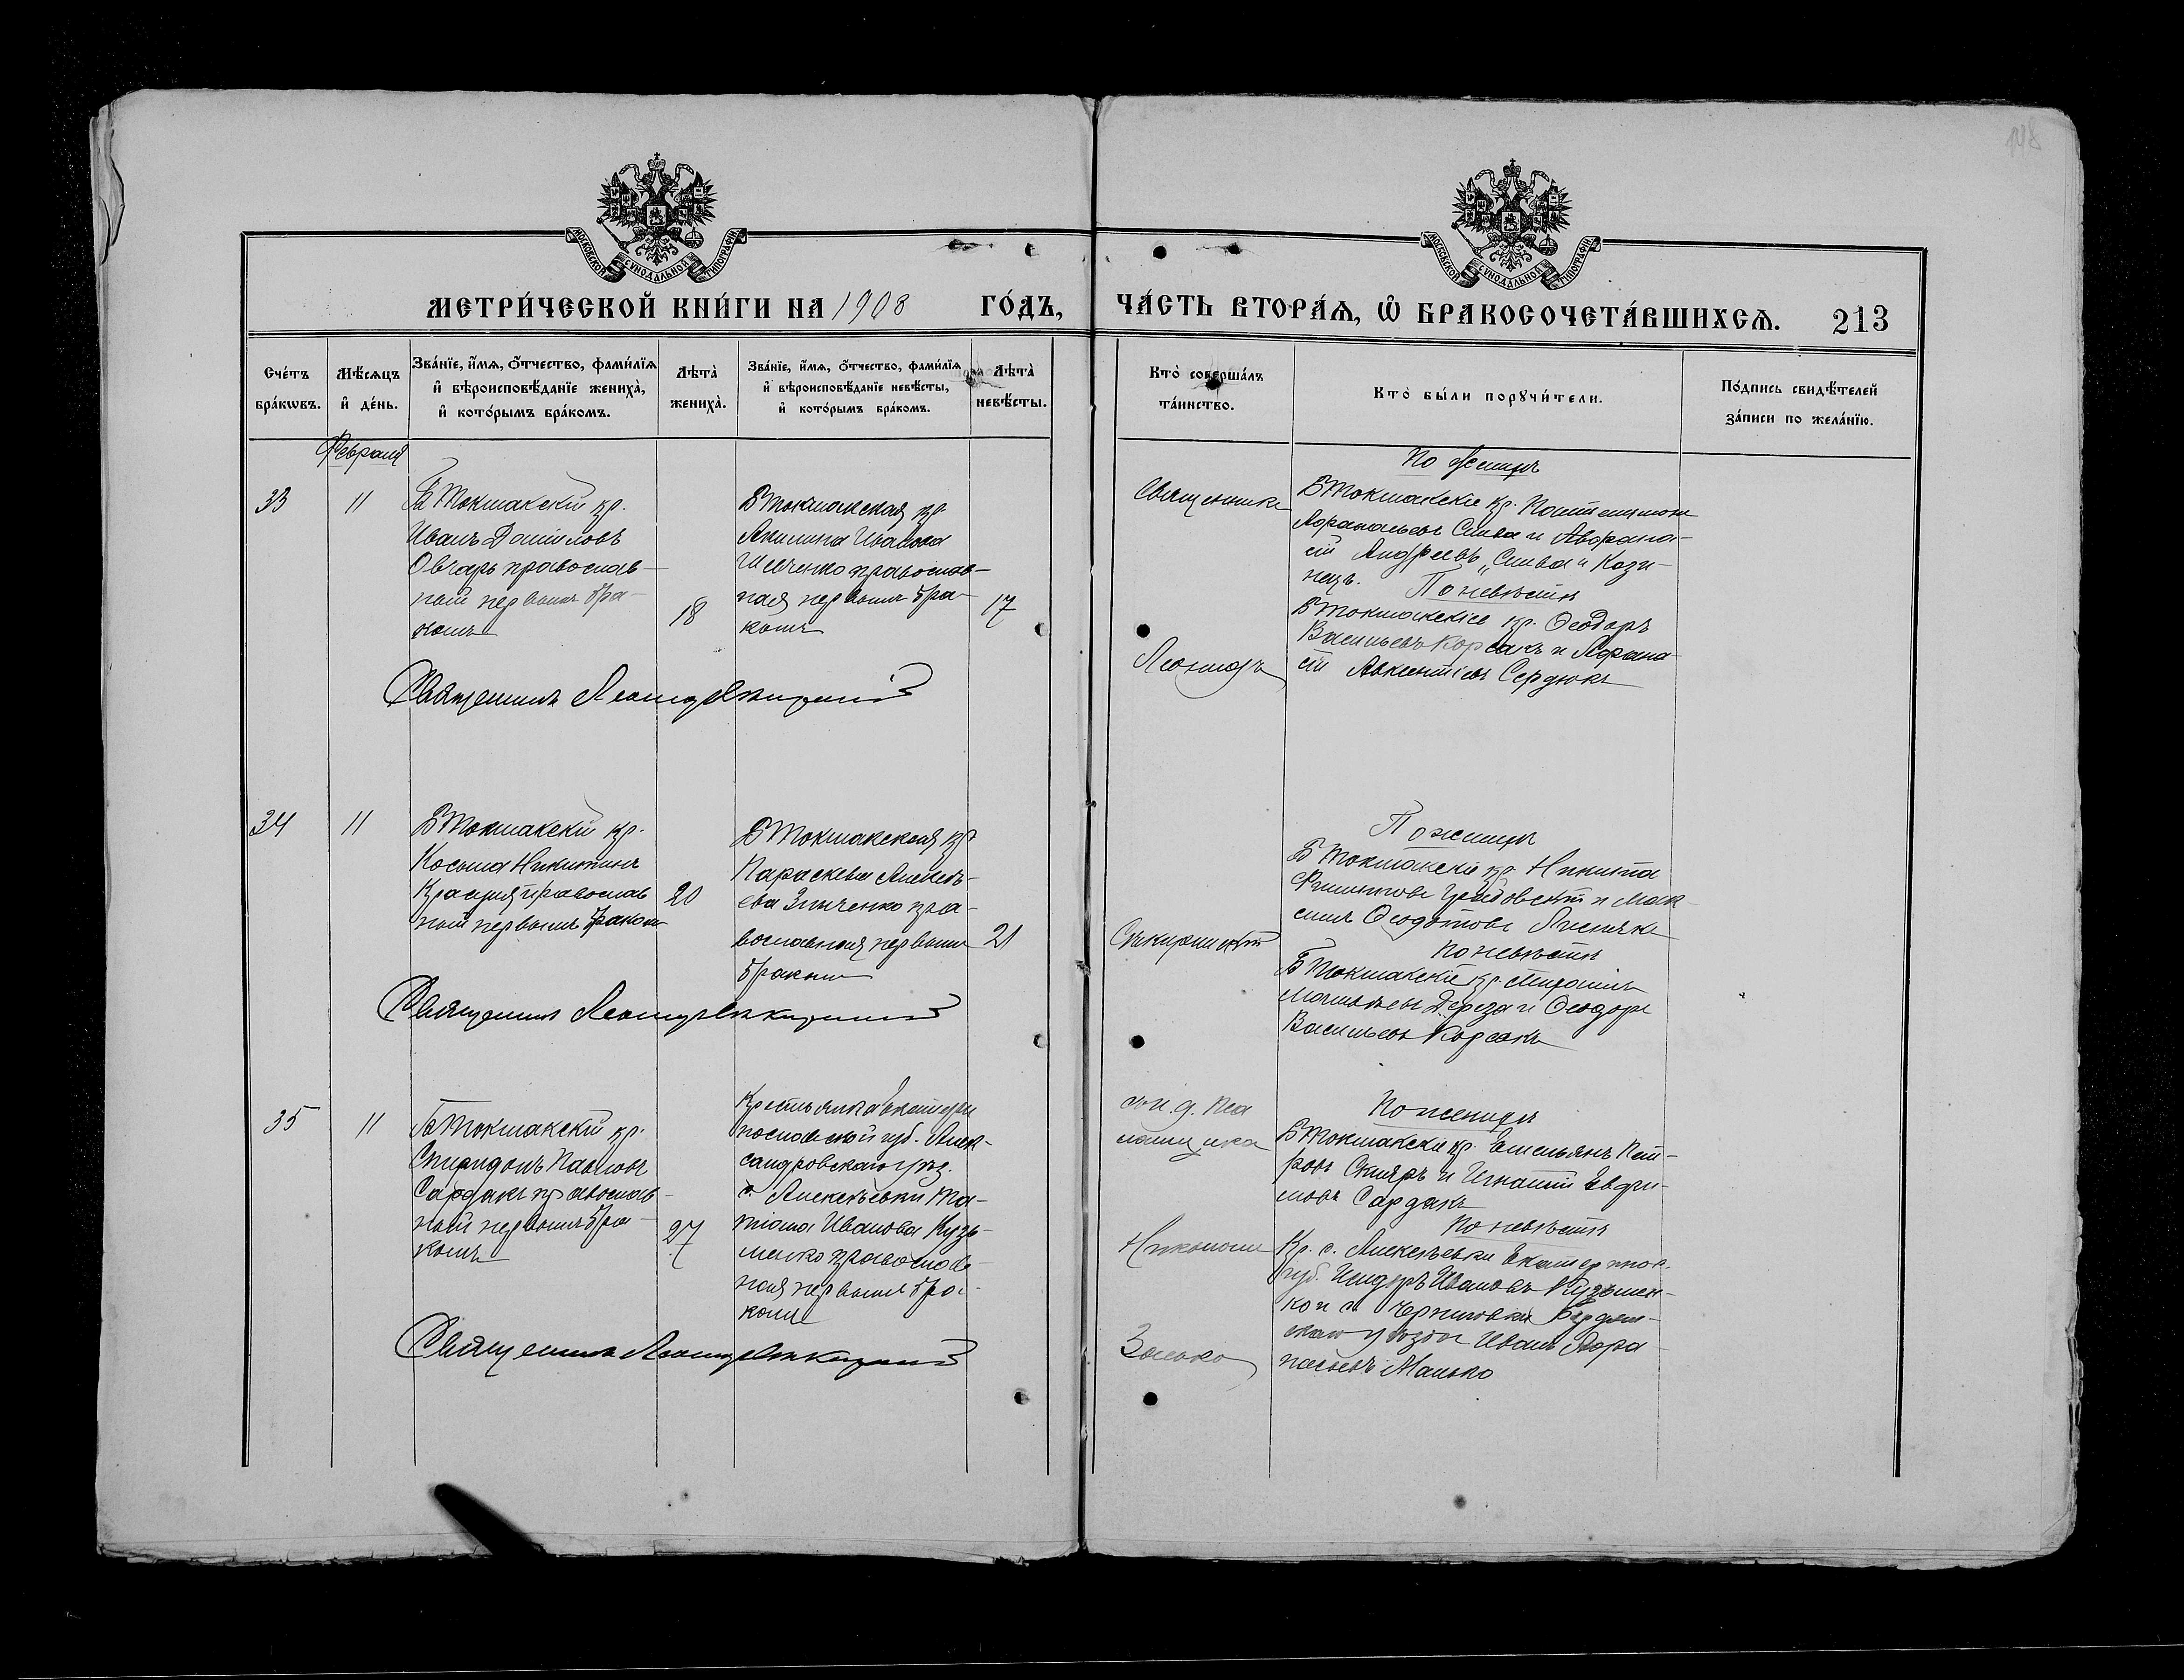 МОСКОВСКОЙ СУНОДАЛЬНОЙ ТИПОГРАФІИ
МОСКОВСКОЙ СУНОДАЛЬНОЙ ТИПОГРАФІИ
МЕТРИ́ЧЕСКОЙ КНИ́ГИ НА 1908 ГО́ДЪ,
ЧА́СТЬ ВТОРА́Ѧ, Ѽ БРАКОСОЧЕТА́ВШИХСѦ. 213
Сче́тъ
бра́кѡвъ.
Мѣ́сѧцъ
и҆ де́нь.
Зва́нїе, и҆́мѧ, ѻ҆́тчество, фами́лїѧ
и҆ вѣроисповѣ́данїе жениха̀,
и҆ кото́рымъ бра́комъ.
Лѣта̀
жениха̀.
Зва́нїе, и҆́мѧ, ѻ҆́тчество, фами́лїѧ
и҆ вѣроисповѣ́данїе невѣ́сты,
и҆ кото́рымъ бра́комъ.
Лѣта̀
невѣ́сты.
Кто̀ соверша́лъ
та́инство.
Кто̀ бы́ли порꙋчи́тели.
По́дпись свидѣ́телей
за́писи по жела́нїю.
Февраля
33
11
Б Токмакскій кр.
Иванъ Даніиловъ
Овчаръ православ-
ный первымъ бра-
комъ
18
Б Токмакская кр.
Акилина Иванова
Шевченко православ-
ная первымъ бра-
комъ
17
Священникъ
Леонидъ
По женихѣ
Б Токмакскіе кр. Пантелимонъ
Афанасьевъ Слива и Афана-
сій Андреевъ "Слива" и Кази-
нецъ. По невѣстѣ
Б Токмакскіе кр. Ѳеодоръ
Васильевъ Корсакъ и Афана-
сій Авксентіевъ Сердюкъ
Священникъ Леонидъ Сѣкирскій
34
11
Б Токмакскій кр.
Косьма Никитинъ
православ
ный первымъ бракомъ
20
Б Токмакская кр
Параскева Алексѣ-
ева Зинченко пра-
вославная первымъ
бракомъ
21
По женихѣ
Б Токмакскіе кр. Никита
и Мак-
симъ Ѳеодотовъ
По невѣстѣ
Б Токмакскіе кр.
Дереза и Ѳеодоръ
Васильевъ Корсакъ
Священникъ Леонидъ
35
11
Б Токмакскій кр.
Спиридонъ Павловъ
Сардакъ православ-
ный первымъ бра-
комъ
27
Крестьянка Екатери
нославской губ. Алек-
сандровскаго уѣз.
с. Алексѣевки Та-
тіана Иванова Кузь-
менко православ-
ная первымъ бра-
комъ
съ и. д. пса
ломщика
Николаемъ
По женихѣ
Б Токмакскіе кр. Емельянъ Пет-
ровъ Скляръ и Игнатій Евфи-
мовъ Сардакъ
По невѣстѣ
Кр. с. Алексѣевки Екатеринос.
губ. Исидоръ Ивановъ Кузьмен-
ко и с. Черниговки Бердян-
скаго уѣзда Иванъ Афа-
насьевъ Манько
Священникъ Леонидъ